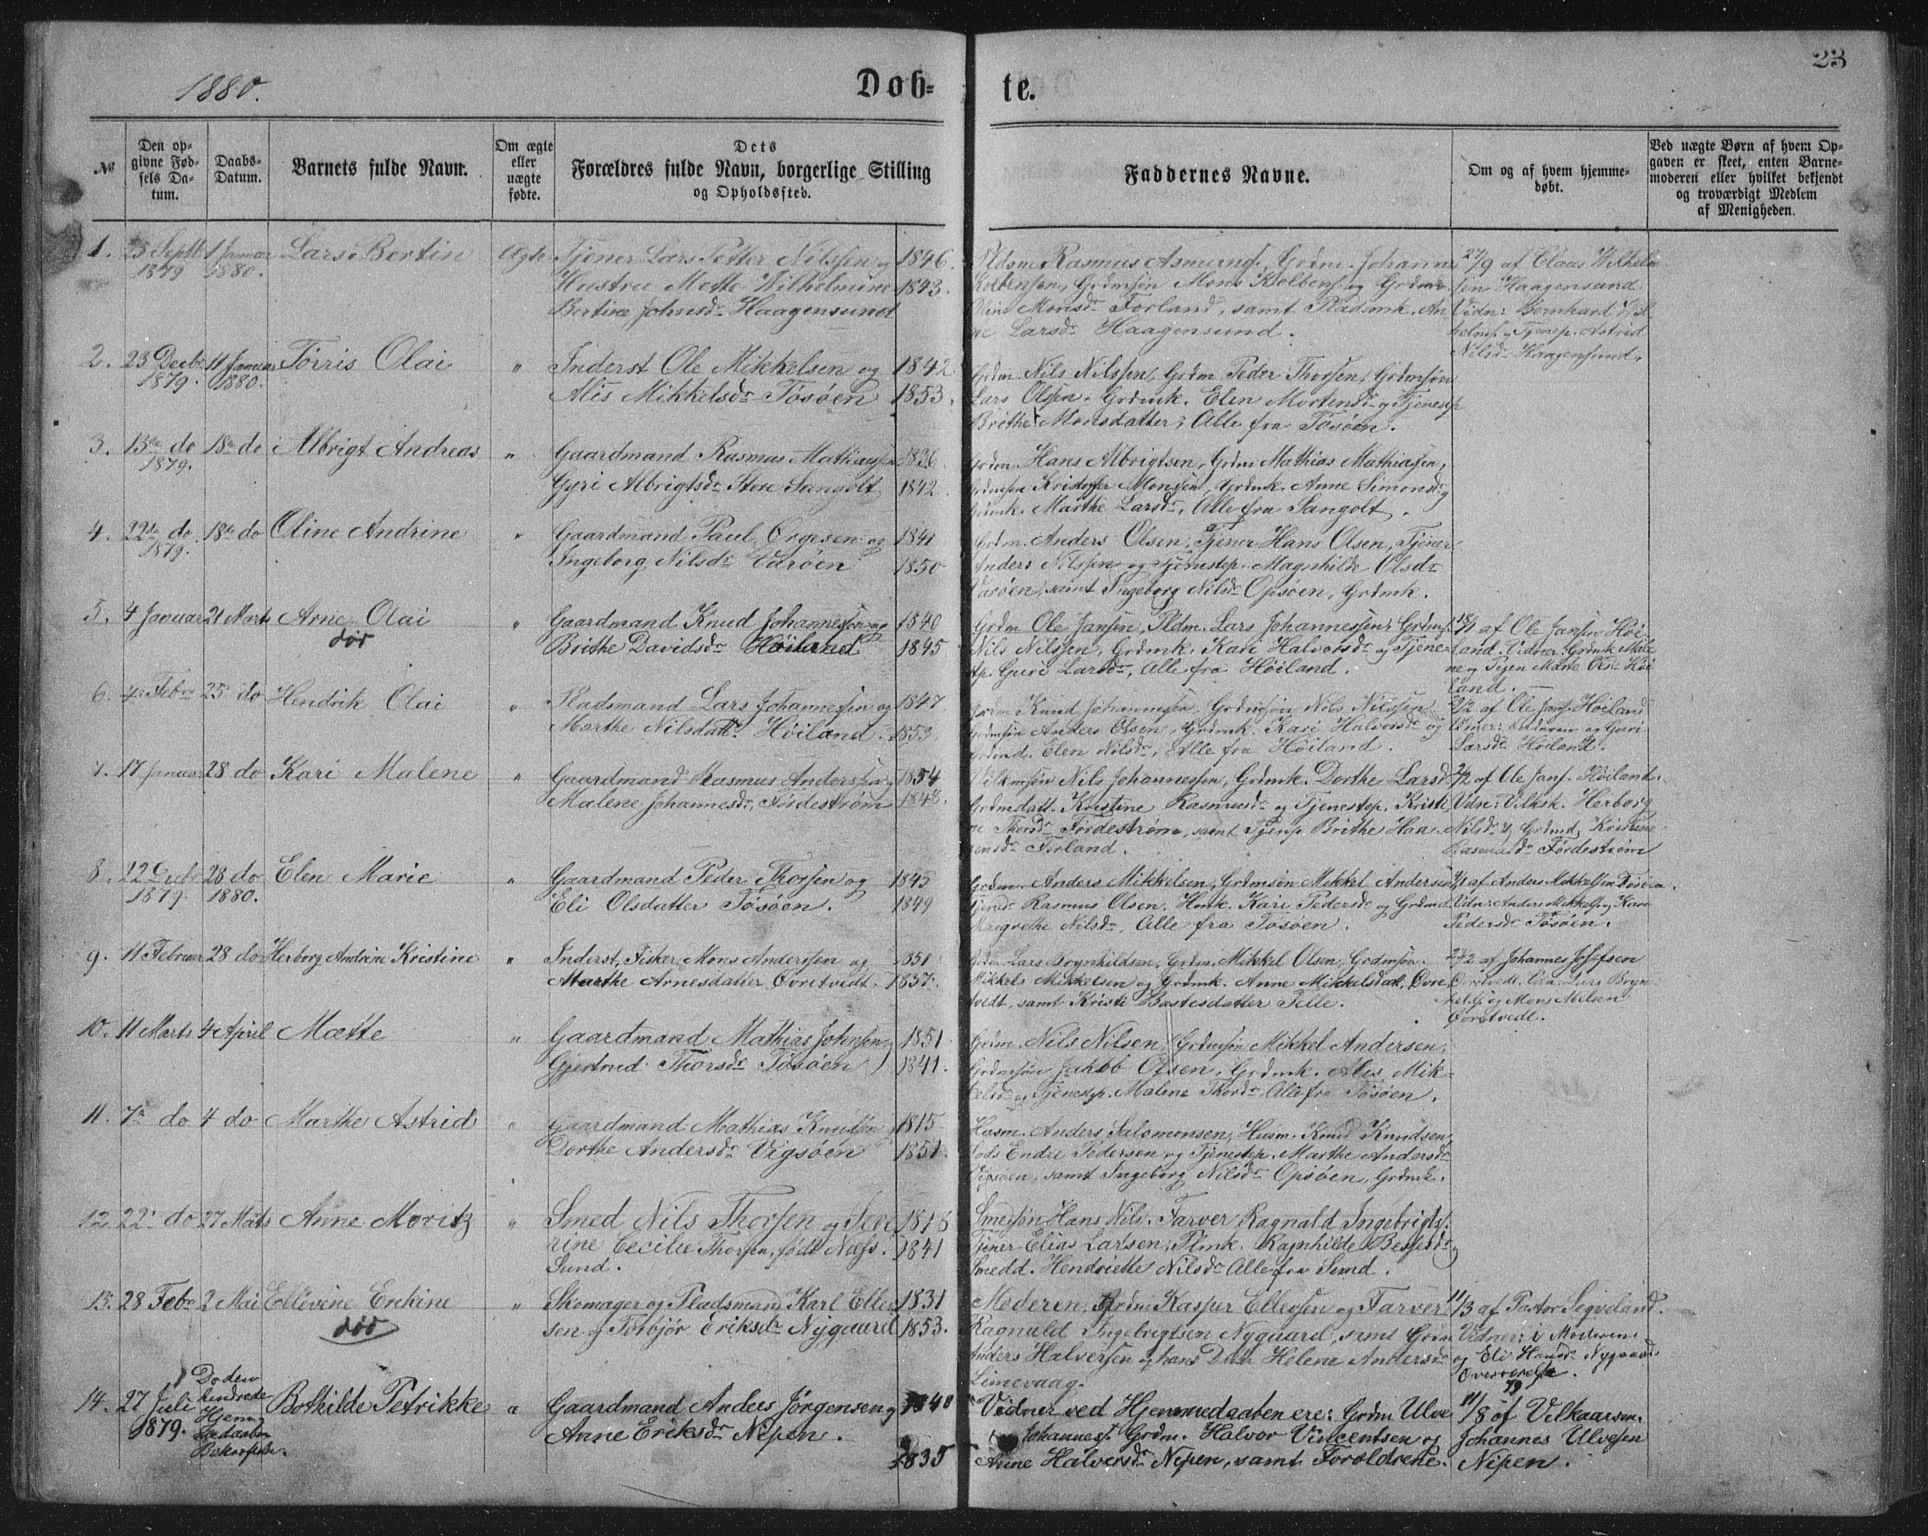 23
1880.
Døb-
te.
№
Den op-
givne Fød-
sels Da-
tum.
Daabs-
Datum.
Barnets fulde Navn.
Om ægte
eller
uægte
fødte.
Dets
Forældres fulde Navn, borgerlige Stilling
og Opholdssted.
Faddernes Navne.
Om og af hvem hjemme-
døbt.
Ved uægte Børn af hvem Op-
gaven er skeet, enten Barne-
moderen eller hvilket bekjendt
og troværdigt Medlem
af Menigheden.
1. 25 Septbr 1 Januar Lars Bertin Ægte Tjener Lars Petter Nilssen og 1846.
1879 1880. Hustru Mette Wilhelmine 1843.
Bertine Johnsdr Haagensund
Rasmus Asmungs. Grdm. Johannes
Kolbensen, Grdmsøn Mons Kolbens. og Grdmk.
Monsdr Forland, samt Pladsmk. An
ne Larsdr Haagensund.
27/9 af Claus Wilhelm
sen Haagensund.
Vidn: Bernhard Wil
helms. og Tjenp. Astrid
Nilsdr Haagensund.
2. 23 Decbr 11 Januar Tørris Olai " Inderst Ole Mikkelsen og 1842
1879. 1880. Alis Mikkelsdr Tøsøen 1853.
Grdm. Nils Nilssen, Grdm Peder Thorsen, Grdmsøn
Lars Olssen. Grdmk. Elen Mortensdr og Tjenestep
Brithe Monsdatter; Alle fra Tøsøen.
3. 13de do 18de do Albrigt Andreas " Gaardmand Rasmus Mathiassen 1836.
1879. Gyri Albrigtsdr Store Sangolt 1842.
Grdm. Hans Albrigtsen, Grdm Mathias Mathiassen,
Grdmsøn Kristoffer Monsen, Grdmk. Anne Simonsdr og
Grdmk. Marthe Larsdr, Alle fra Sangolt.
4. 22de do 18de do Oline Andrine " Gaardmand Paul Ørgesen og 1841
1879. Ingeborg Nilsdr Varøen 1850
Grdm. Anders Olsen, Tjener Hans Olsen, Tjener
Anders Nilssen og Tjenestep. Magnhilde Olsdr
Varøen, samt Ingeborg Nilsdr Opsøen, Grdmk.
5. 4 Januar 21 Marts Arne Olai " Gaardmand Knud Johannessen og 1840
dør Brithe Davidsdr Høiland 1845
Grdm Ole Jansen, Pldm. Lars Johannessen, Grdms.
Nils Nilssen, Grdmk. Kari Halvorsdr og Tjene
stp. Guri Larsdr, Alle fra Høiland.
af Ole Jansen Høi
land. Vidner: Grdmk Male
ne og Pigen Marte Olsdr Høi
land.
6. 4 Febr 25 do Hendrik Olai " Pladsmand Lars Johannessen og 1847
Marthe Nilsdatt. Høiland. 1853.
Grdm Knud Johannessen, Grdmsøn Nils Nilssen
Grdmsøn Anders Olsen, Grdmk. Kari Halvorsdr og
Elen Nilsdr, Alle fra Høiland.
2/2 af Ole Jans. Høiland
Larsdr Høiland.
7. 17 Januar 28 do Kari Malene " Gaardmand Rasmus Anderssen og 1854
Malene Johannesdr, Førdestrøm 1848.
Nils Johannessen, Grdmk. Dorthe Larsd
Grdmdatt. Kristine Rasmusdr og Tjenestep. Kristi
ne Thorsdr Førdestrøm, samt Tjenp. Brithe Han
sensdr Forland.
2/2 af Ole Jans. Høiland.
Vdn: Herborg
Nilsdr og Kristine
Rasmusdr Førdestrøm
8. 22 Decbr 28 do Elen Marie " Gaardmand Peder Thorsen og 1845
1879. 1880. Eli Olsdatter Tøsøen. 1849
Grdm. Anders Mikkelsen, Grdmsøn Mikkel Andersen
Rasmus Olsen. Kari Pedersdr og
Margrethe Nilsdr, Alle fra Tøsøen.
af Anders Mikkelsen Tøsøen.
Vdn: Anders Mikkels. og Kari
Pedersdr Tøsøen.
9. 11 Februar 28 do Herborg Andrine Kristine " Inderst, Fisker, Mons Anderssen og 1851
Marthe Arnesdatter Øvretvedt. 1857.
Grdm. Lars Brynhildsen, Grdm. Mikkel Olsen, Grdmsøn.
Mikkels Mikkelsen og Grdmk. Anne Mikkelsdatt. Øvre
tvedt, samt Kristi Bastesdatter Telle.
23/2 af Johannes Josefsen
Øvretvedt. Vdn. Lars Bryn
og Mons Nielsen
Øvretvedt.
10. 11 Marts 4 April Mætte " Gaardmand Mathias Johnsen 1851
Gjertrud Thorsdr Tøsøen 1841.
Grdm. Nils Nilsen, Grdmsøn Mikkel Andersen,
Grdmsøn Jakob Olsen, Grdmk. Alis Mik-
kelsdr og Tjenestep. Malene Thorsdr, Alle fra Tøsøen.
11. 7de do 4 do Marthe Astrid " Gaardmand Mathias Knudsen 1815
Dorthe Andersdr Vigsøen 1851.
Husm. Anders Salomonsen, Husm. Knud Knudsen,
Endre Pedersen og Tjenestep. Marthe Andersdr
Vigsøen, samt Ingeborg Nilsdr Opsøen, Grdmk.
12. 22 do 27 Mats Anne Moritz " Smed Nils Thorsen og Seve 1818
rine Cecilie Thorsen, født Næss 1841
Sund.
Smedsøn Hans Nils. Farver Ragnald Ingebrigts.
Tjener Elias Larsen, Plmk. Ragnhilde Bessesdr og
Smedd. Hendriette Nilsdr Alle fra Sund.
13. 28 Febr 2 Mai Ellevine Erekine " Skomager og Pladsmand Karl Ellef 1831
død sen og Torbjør Eriksdr Nygaard 1853.
Moderen, Grdm Kasper Ellefsen og Farver
Ragnald Ingebrigtsen Nygaard, samt Grdm
Anders Halversen og hans Dattr Helene Andersdr
Limevaag.
11/3 af Pastor Sigveland.
Vidner: i Moderens
og Eli Hansdr Nygaard
Overværelse.
14. 27 Juli Døden Bothilde Petrikke " Gaardmand Anders Jørgensen og 1840
1879. hindrede Anne Eriksdr Nipen. 1835
Hjem
medaaben
Vidner ved Hjemmedaaben ere: Grdm Ulve
Johannes. Grdm. Halvor Vincentsen og
Anne Halversdr Nipen, samt Forældrene.
11/8 79 af Velkaarsm.
Johannes Ulvesen
Nipen.